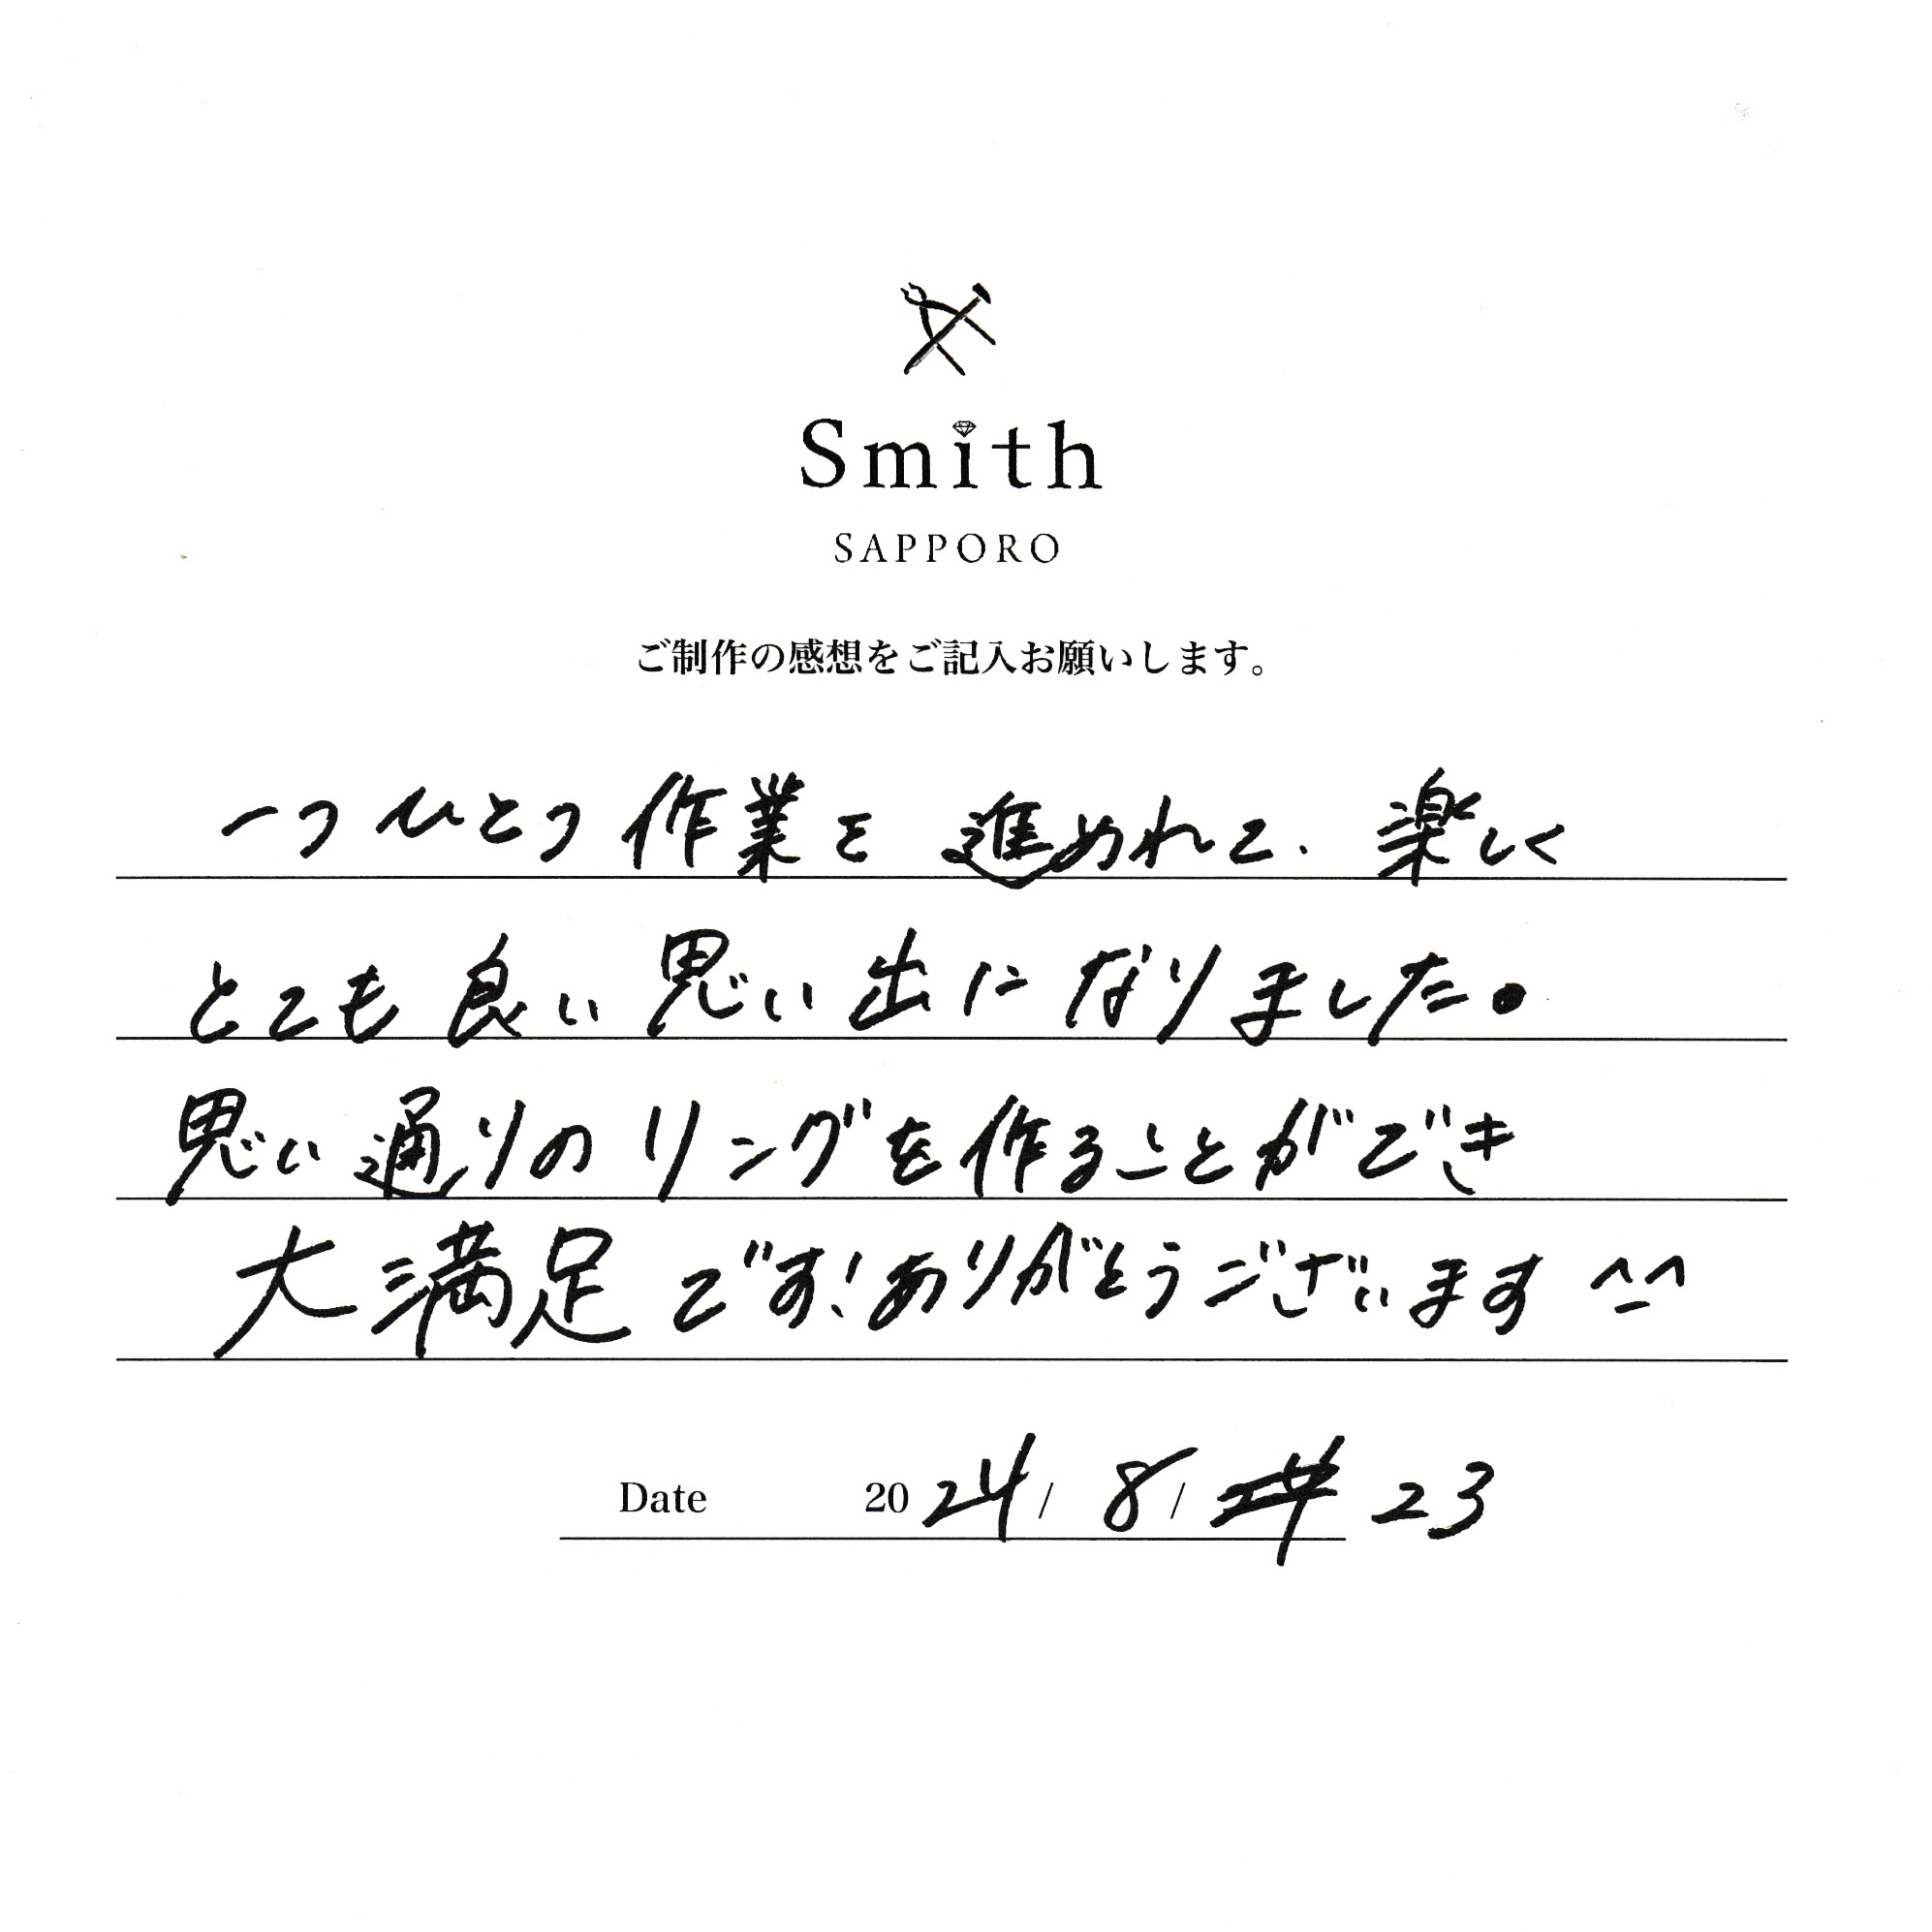 Smith
SAPPORO
ご制作の感想をご記入お願いします。
一つひとつ作業を進めれて、楽しく
とても良い思い出になりました。
思い通りのリングを作ることができ
大満足です!ありがとうございます ^_^
Date 2024/8/24 23